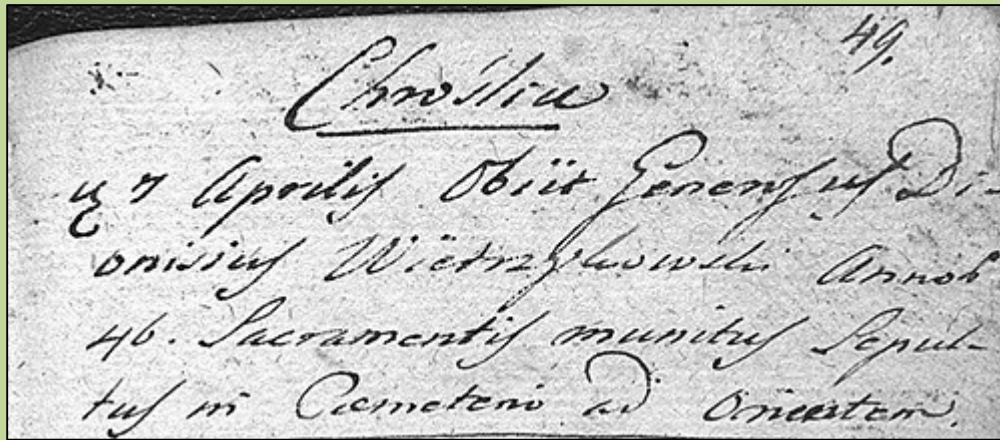 49.
Chroślice
7 Aprilis Obiit Generosus Di-
onisius Wietrzykowski Annos
46. Sacramentis munitus Sepul-
tus in Cœmeterio ad Orientem.